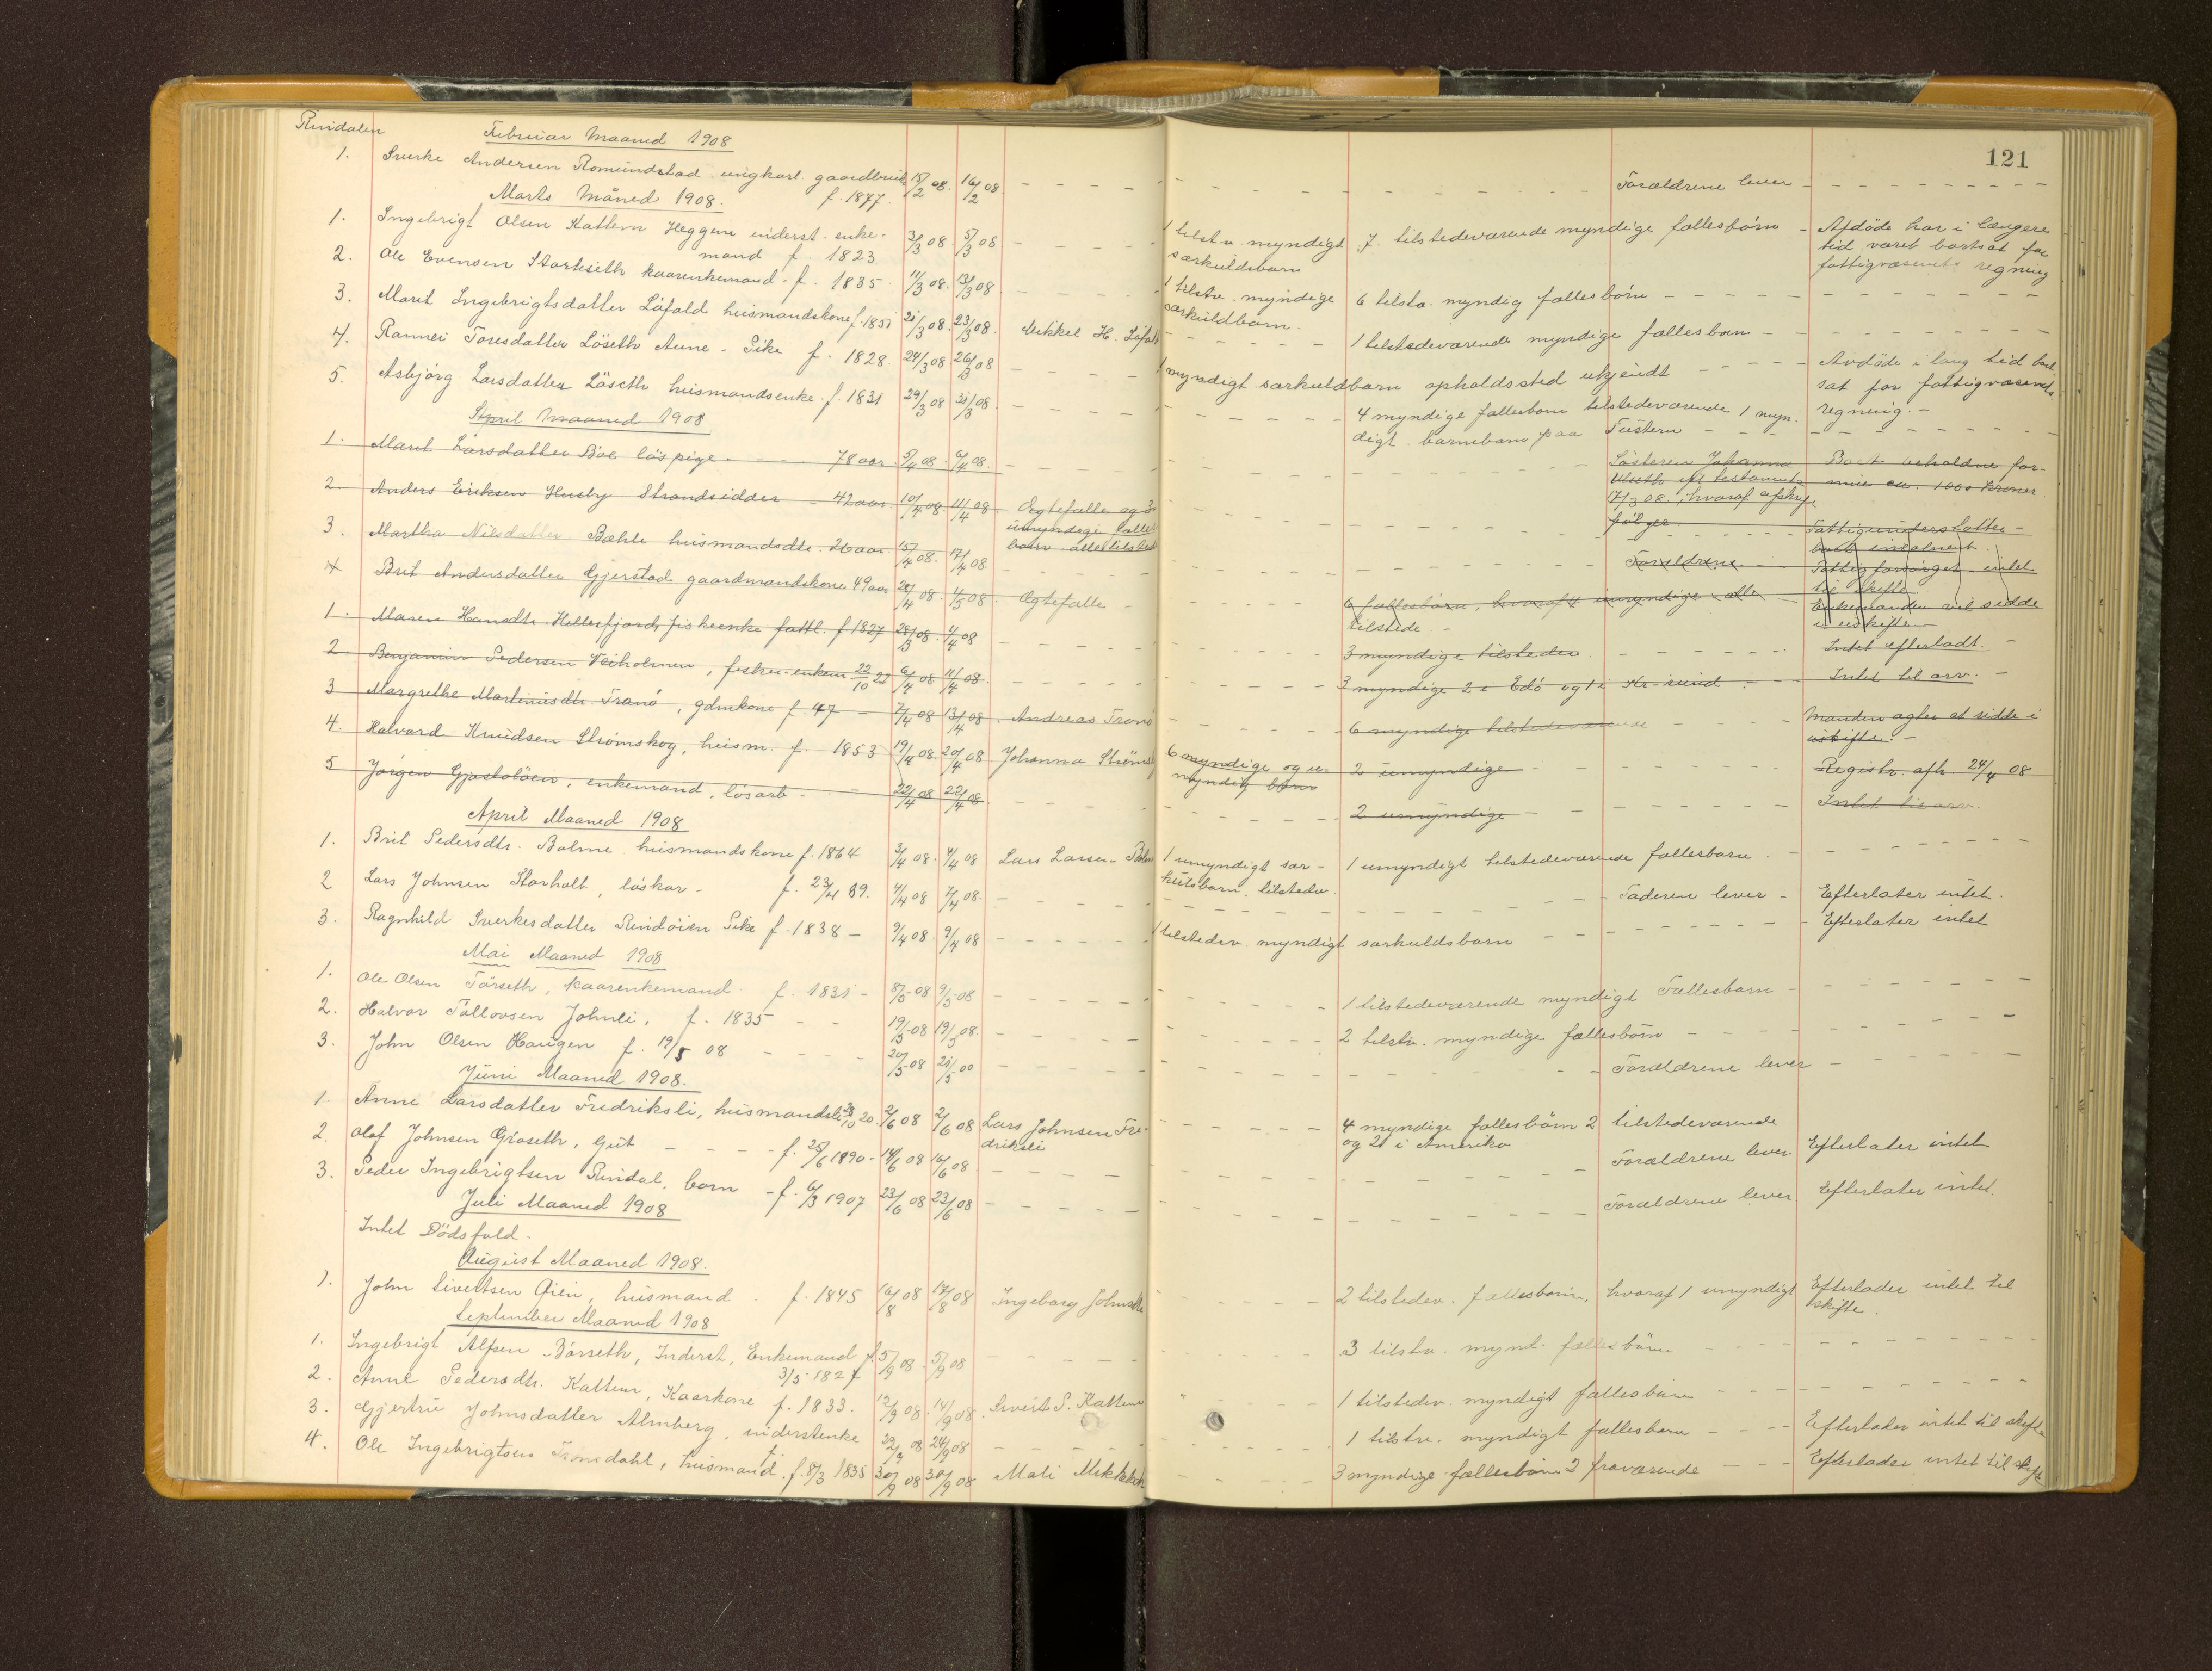 121
Rindalen
Februar Maaned 1908
1. Sverke Andersen Romundstad ungkarl gaardbruk 15/2 08. 16/2 08 - - - - Forældrene lever - - - -
f. 1877.
Marts Måned 1908.
1. Ingebrigt Olsen Kattem Heggem inderst. enke- 3/3 08 5/3 08 - - - 1 tilstv. myndigt 7 tilstedeværende myndige fællesbörn - Afdöde har i længere
mand f. 1823 særkuldsbarn tid været bortsat for
fattigvæsenets regning
2. Ole Evensen Storliseth kaarenkemand - f. 1835. 11/3 08. 13/3 08. - - - 1 tilstv. myndige 6 tilstv. myndig fællesbörn - - - -
særkuldbarn.
3. Marit Ingebrigtsdatter Löfald husmandskone f. 1851 21/3 08. 23/3 08. Mikkel H. Löfald - - - 1 tilstedeværende myndige fællesbarn - - - -
4. Rannei Toresdatter Löseth Aune - Pike f. 1828. 24/3 08 26/3 08 - - - 1 myndigt særkuldbarn opholdssted ukjendt - - - Avdöde i lang tid bort-
sat for fattigvæsenets
regning. -
5. Asbjörg Larsdatter Löseth husmandsenke. f. 1831 29/3 08 31/3 08. - - - 4 myndige fællesbarn tilstedeværende 1 myn.
digt. barnebarn paa Tustern - - - -
April Maaned 1908
1. Marit Larsdatter Böe löspige - 78 aar. 5/4 08. 6/4 08. - - - Sösteren Johanna Boet beholdne for-
testament mue ca. 1000 kroner
17/3 08, hvoraf afskr.
fölger.
2. Anders Eriksen Husby Strandsidder - 42 aar. 10/4 08 11/4 08 Ægtefælle og 3 Fattigunderstöttet -
umyndige fælles
barn alle tilsted
3. Martha Nilsdatter Bæhle husmandsdtr. 26 aar. 15/4 08. 17/4 08. - - - Forældrene Fattigforsörget intet
til skifte
4 Brit Andersdatter Gjerstad gaardmandskone 49 aar 28/4 08. 1/5 08. Ægtefælle - 6 fællesbörn, hvoraf 4 umyndige - alle Enkemanden vil sidde
tilstede. - i uskifte
1. Maren Hansdtr. Hellesfjord, fiskerenke fattl. f 1827 28/3 08 1/4 08 - - - 3 myndige tilstede - - - Intet efterladt. -
2. Benjamin Pedersen Veiholmen, fisker enkem 22/10 22 6/4 08. 11/4 08. - - - 3 myndige 2 i Edö og 1 i Kr-sund - - Intet til arv. -
3 Margrethe Martinusdtr. Tranö, gdmkone f. 47 - 7/4 08 13/4 08. Andreas Tronö - - 6 myndige tilstedeværende - - - Manden agter at sidde i
uskifte. -
4. Halvard Knudsen Strömskog, husm. f. 1853 19/4 08. 20/4 08 Johanna Strömsk 6 myndige og u- 2 umyndige - - - Registr. afh. 24/4 08
myndig börn
5 Jörgen Gjestolöen, enkemand, lösarb - 22/4 08 22/4 08. - - - 2 umyndige - - - Intet til arv.
April Maaned 1908
1. Brit Pedersdtr. Bolme husmandskone f. 1864 3/4 08. 4/4 08 Lars Larsen Bolme 1 umyndigt sær- 1 umyndigt tilstedeværende fællesbarn. - - -
kulsbarn. tilstedv.
2 Lars Johnsen Storholt, löskar - f. 23/4 89. 4/4 08 7/4 08. - - - Faderen lever - Efterlater intet.
3. Ragnhild Sverkesdatter Rindöien Pike f. 1838 - 9/4 08. 9/4 08 - - - 1 tilstedev. myndigt særkuldsbarn - - - Efterlater intet
Mai Maaned 1908
1. Ole Olsen Törseth, kaarenkemand f. 1831 - 8/5 08 9/5 08 - - - 1 tilstedeværende myndigt Fællesbarn - - -
2. Halvar Tollovsen Johnli, f. 1835 - - 19/5 08 19/5 08. - - - 2 tilstv. myndige fællesbörn - - -
3. John Olsen Haugen f. 19/5 08 - - - 20/5 08 21/5 00 - - - Forældrene lever -
Juni Maaned 1908.
1. Anne Larsdatter Fredriksli, husmandsk 28/10 20. 2/6 08 2/6 08 Lars Johnsen Fre- - - - 4 myndige fællesbörn 2 tilstedeværende
driksli og 2 i Amerika
2. Olaf Johnsen Gröseth, Gut - - - f. 25/6 1890 - 14/6 08 16/6 08 - - - Forældrene lever. Efterlater intet
3. Peder Ingebrigtsen Rindal, barn - f. 6/3 1907 23/6 08 23/6 08 - - - Forældrene lever. Efterlater intet.
Juli Maaned 1908
Intet Dödsfald.
August Maaned 1908.
1. John Sivertsen Öien, husmand f. 1845 16/8 08 17/8 08 Ingeborg Johnsdtr - - - 2 tilstedev. fællesbörn, hvoraf 1 umyndigt Efterlader intet til
skifte.
September Maaned 1908
1. Ingebrigt Alfsen Börseth, Inderst, Enkemand f. 5/9 08. 5/9 08 - - - 3 tilstv. mynd. fællesbörn - - -
3/5 1827
2. Anne Pedersdtr. Kattem, Kaarkone f. 1833. 12/9 08. 14/9 08. Sivert P. Kattem - - - 1 tilstedev. myndigt fællesbarn - - -
3. Gjertru Johnsdatter Almberg, inderstenke 22/9 08 24/9 08 - - - 1 tilstv. myndigt fællesbarn - - - Efterlader intet til skifte
4. Ole Ingebrigtsen Tronsdahl, husmand. f. 8/3 1835 30/9 08 30/9 08 Mali - - - 3 myndige fællesbörn 2 fraværende - - - Efterlader intet til skifte